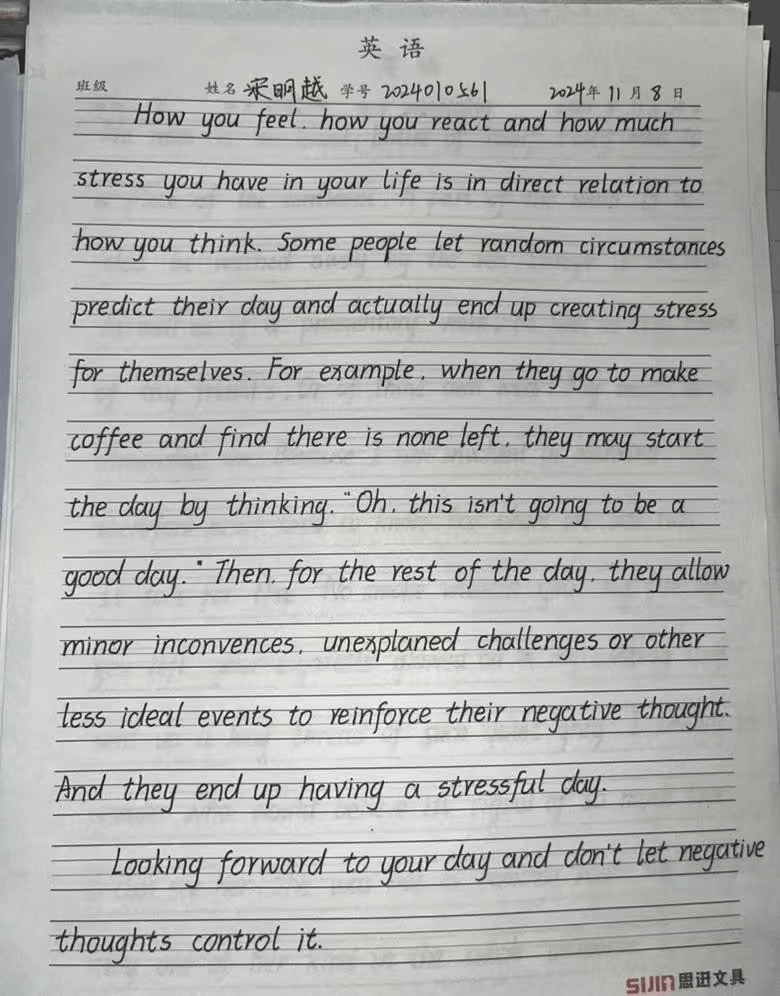 英 语
班级 姓名 宋明越 学号 2024010561 2024年 11 月 8 日
How you feel, how you react and how much
stress you have in your life is in direct relation to
how you think. Some people let random circumstances
predict their day and actually end up creating stress
for themselves. For example, when they go to make
coffee and find there is none left, they may start
the day by thinking, "Oh, this isn't going to be a
good day." Then, for the rest of the day, they allow
minor inconvences, unexplaned challenges or other
less ideal events to reinforce their negative thought.
And they end up having a stressful day.
Looking forward to your day and don't let negative
thoughts control it.
SIJIN思进文具